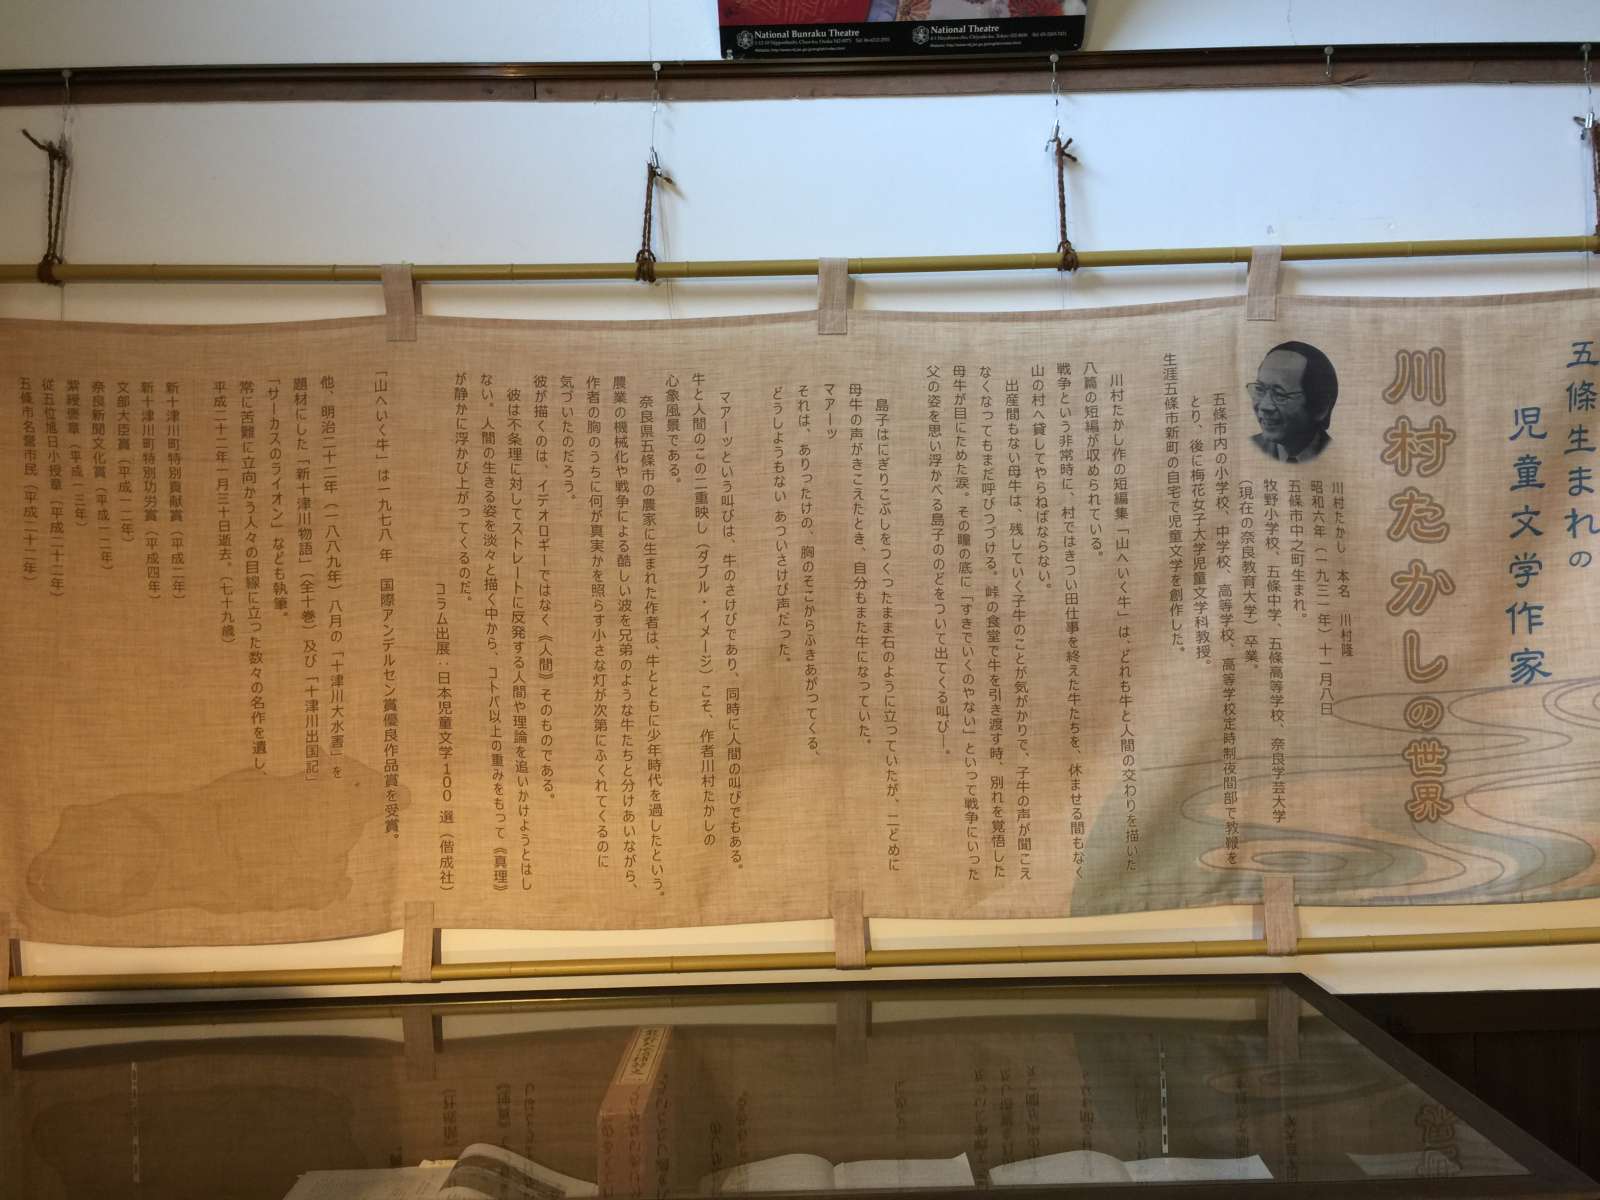 National Bunraku Theatre
National Theatre
五條生まれの
児童文学作家
川村たかしの世界
川村たかし 本名 川村隆
昭和六年(一九三一年)十一月八日
五條市中之町生まれ。
牧野小学校、五條中学、五條高等学校、奈良学芸大学
(現在の奈良教育大学)卒業。
五條市内の小学校、中学校、高等学校、高等学校定時制夜間部で教鞭を
とり、後に梅花女子大学児童文学科教授。
生涯五條市新町の自宅で児童文学を創作した。
川村たかし作の短編集「山へいく牛」は、どれも牛と人間の交わりを描いた
八篇の短編が収められている。
戦争という非常時に、村ではきつい田仕事を終えた牛たちを、休ませる間もなく
山の村へ貸してやらねばならない。
出産間もない母牛は、残していく子牛のことが気がかりで、子牛の声が聞こえ
なくなってもまだ呼びつづける。峠の食堂で牛を引き渡す時、別れを覚悟した
母牛が目にためた涙。その瞳の底に「すきでいくのやない」といって戦争にいった
父の姿を思い浮かべる島子ののどをついて出てくる叫び―。
島子はにぎりこぶしをつくったまま石のように立っていたが、二どめに
母牛の声がきこえたとき、自分もまた牛になっていた。
マアーッ
それは、ありったけの、胸のそこからふきあがってくる、
どうしようもない あついさけび声だった。
マアーッという叫びは、牛のさけびであり、同時に人間の叫びでもある。
牛と人間のこの二重映し(ダブル・イメージ)こそ、作者川村たかしの
心象風景である。
奈良県五條市の農家に生まれた作者は、牛とともに少年時代を過したという。
農業の機械化や戦争による酷しい波を兄弟のような牛たちと分けあいながら、
作者の胸のうちに何が真実かを照らす小さな灯が次第にふくれてくるのに
気づいたのだろう。
彼が描くのは、イデオロギーではなく《人間》そのものである。
彼は不条理に対してストレートに反発する人間や理論を追いかけようとはし
ない。人間の生きる姿を淡々と描く中から、コトバ以上の重みをもって《真理》
が静かに浮かび上がってくるのだ。
コラム出展:日本児童文学100選(偕成社)
「山へいく牛」は一九七八年 国際アンデルセン賞優良作品賞を受賞。
他、明治二十二年(一八八九年)八月の「十津川大水害」を
題材にした「新十津川物語」(全十巻)及び「十津川出国記」
「サーカスのライオン」なども執筆。
常に苦難に立向かう人々の目線に立った数々の名作を遺し、
平成二十二年一月三十日逝去。(七十九歳)
新十津川町特別貢献賞(平成二年)
新十津川町特別功労賞(平成四年)
文部大臣賞(平成一二年)
奈良新聞文化賞(平成一二年)
紫綬褒章(平成一三年)
従五位旭日小授章(平成二十二年)
五條市名誉市民(平成二十二年)